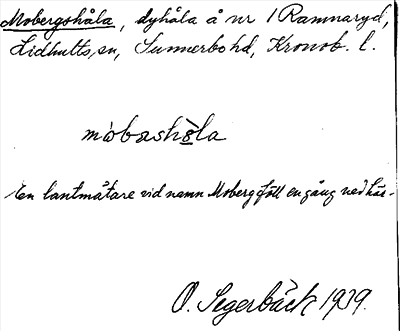 Mobergshåla, dyhåla å nr 1 Ramnaryd,
Lidhults sn, Sunnerbo hd, Kronob. l.
mòbashòla
En lantmätare vid namn Moberg föll en gång ned här.
O. Segerbäck 1939.